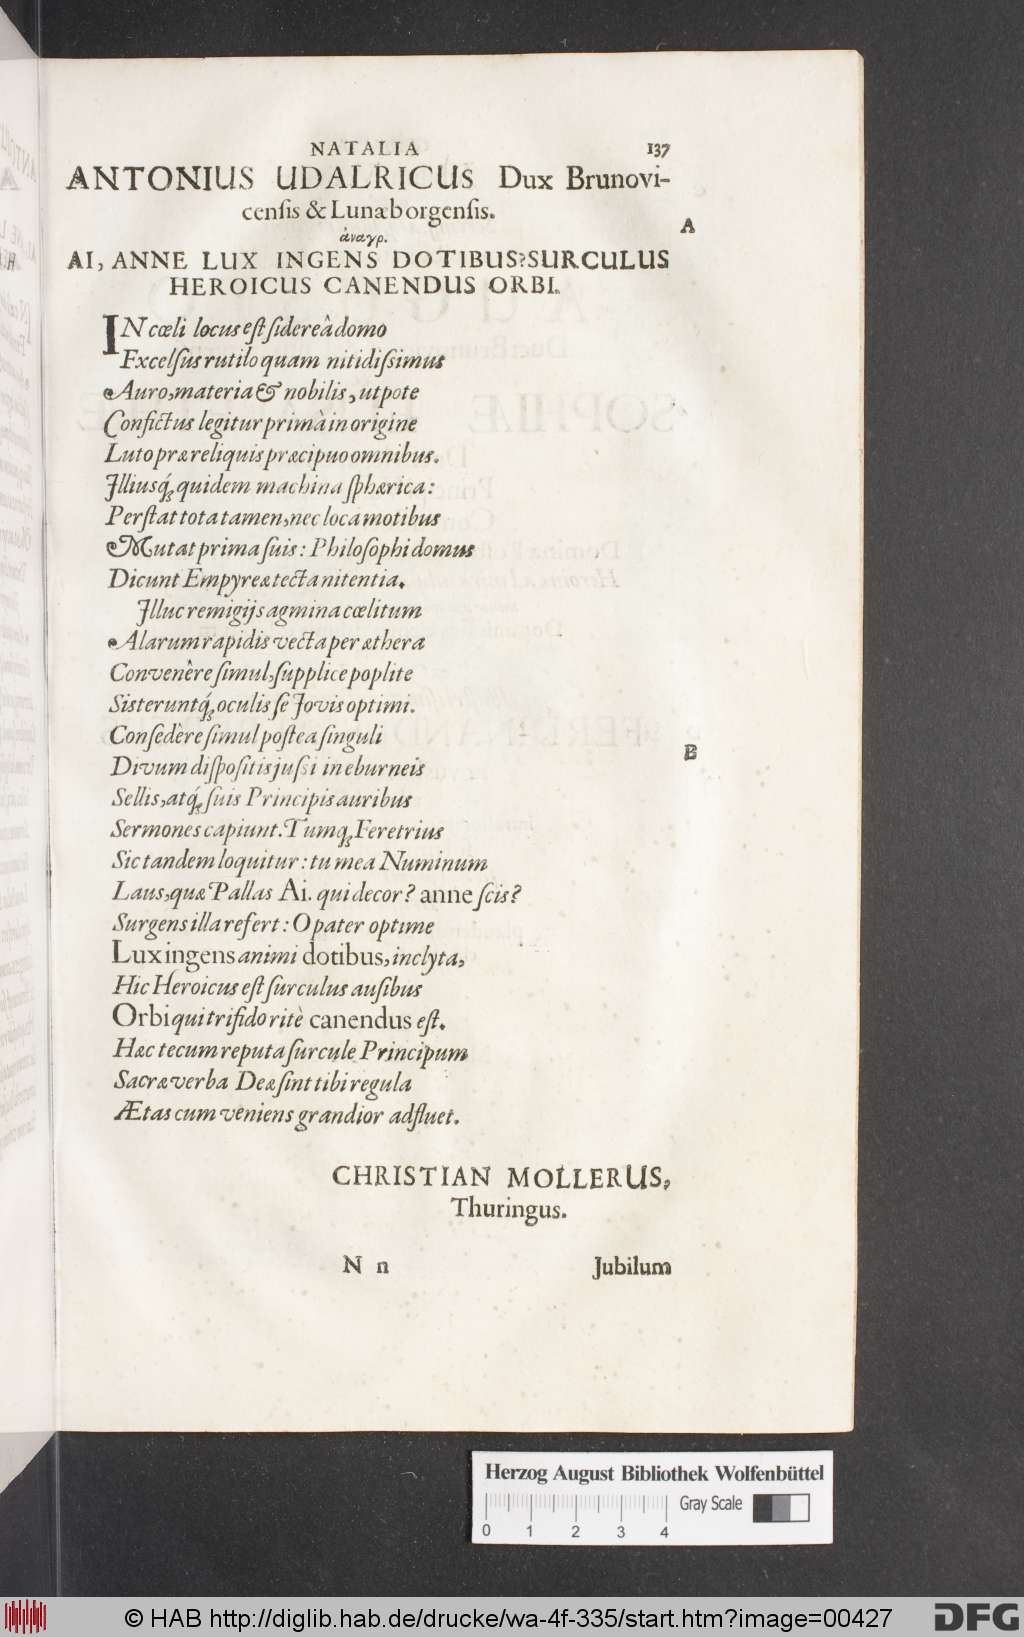 NATALIA 137
ANTONIUS UDALRICUS Dux Brunovi-
censis & Lunæborgensis.
A
ἀναγρ.
AI, ANNE LUX INGENS DOTIBUS? SURCULUS
HEROICUS CANENDUS ORBI.
IN cœli locus est sidereâ domo
Excelsus rutilo quam nitidissimus
Auro, materia & nobilis, utpote
Confictus legitur primà in origine
Luto præ reliquis præcipuo omnibus.
Illiusq́; quidem machina sphærica:
Perstat tota tamen, nec loca motibus
Mutat prima suis: Philosophi domus
Dicunt Empyreæ tecta nitentia.
Illuc remigijs agmina cœlitum
Alarum rapidis vecta per æthera
Convenêre simul, supplice poplite
Sisteruntq́; oculis se Jovis optimi.
Consedère simul postea singuli
Divum dispositis jussi in eburneis
B
Sellis, atq́; suis Principis auribus
Sermones capiunt. Tumq; Feretrius
Sic tandem loquitur: tu mea Numinum
Laus, quæ Pallas Ai. qui decor? anne scis?
Surgens illa refert: O pater optime
Lux ingens animi dotibus, inclyta,
Hic Heroicus est surculus ausibus
Orbi qui trifido ritè canendus est.
Hæc tecum reputa surcule Principum
Sacræ verba Deæ sint tibi regula
Ætas cum veniens grandior adfluet.
CHRISTIAN MOLLERUS,
Thuringus.
N n Jubilum
Herzog August Bibliothek Wolfenbüttel
Gray Scale
0 1 2 3 4
© HAB http://diglib.hab.de/drucke/wa-4f-335/start.htm?image=00427
DFG